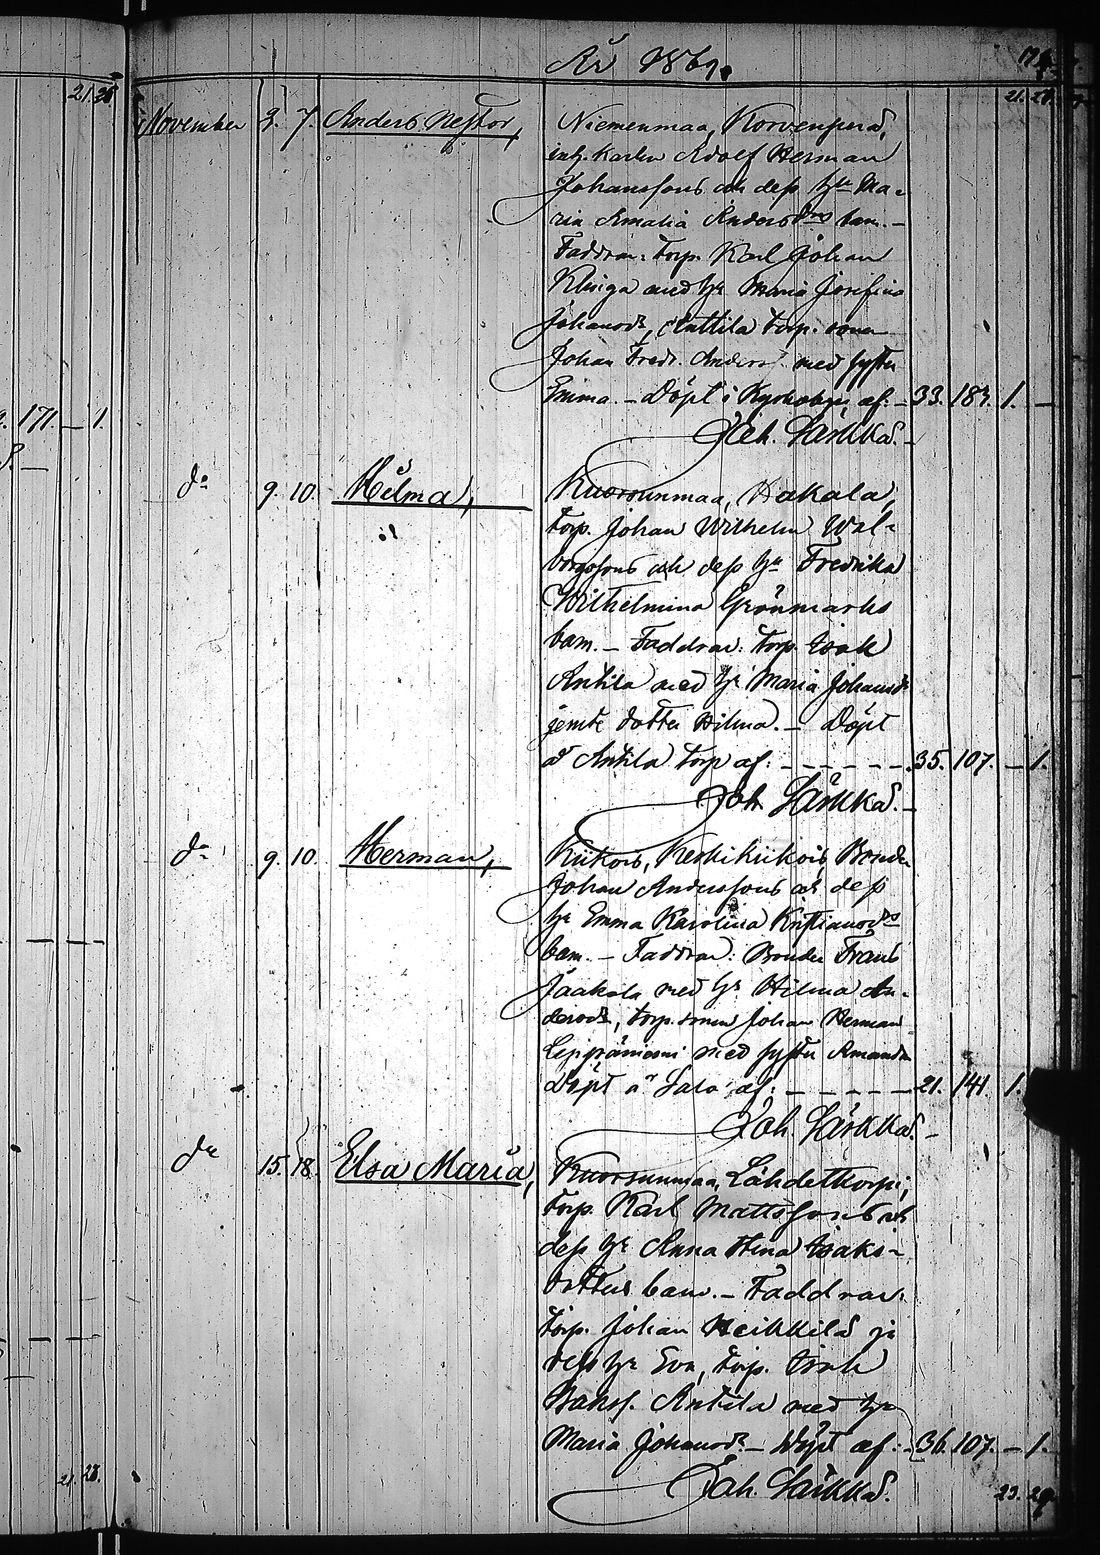 År 1869.
21. 28.
November 3. 7. Anders Nestor, Niemenmaa, Korvenperä,
inh. karlen Adolf Herman
Johanssons och dess hu Ma-
ria Amalia Andersdrs barn. —
Faddrar: Torp. Karl Johan
med hu Maria Josefina
Johansdr, Anttila torp. sonen
Johan Fredr. Anderss. med syster
Emma. — Döpt i Kyrkobyn af: — 33. 183. 1. —
Joh. Särkkä. —
do 9. 10. Hilma, Kuorsunmaa, Hakala,
torp. Johan Wilhelm Wal-
borgssons och dess hu Fredrika
Wilhelmina Grönmarks
barn. — Faddrar: torp. Isak
Antila med hu Maria Johansdr
jemte dotter Hilma. — Döpt
å Antila torp af: — 35. 107. — 1.
Joh. Särkkä. —
do 9. 10. Herman, Kiikois, Keskikiikois, Bonden
Johan Anderssons och dess
hu Emma Karolina Kristiansdrs
barn. — Faddrar: Bonden Frans
Jaakola med hu Hilma An-
dersdr, torp. sonen Johan Herman
med syster Amanda
Döpt å Salo af: — 21. 141. 1.
Joh. Särkkä. —
do 15. 18. Elsa Maria, Kuorsunmaa, Lähdetorpi,
torp. Karl Mattssons och
dess hu Anna Stina Isaks-
dotters barn. — Faddrar:
torp. Johan Heikkilä
dess hu Eva, torp. Isak
Isakss. Antila med hu
Maria Johansdr — Döpt af: — 36. 107. — 1.
Joh. Särkkä.
23. 29.